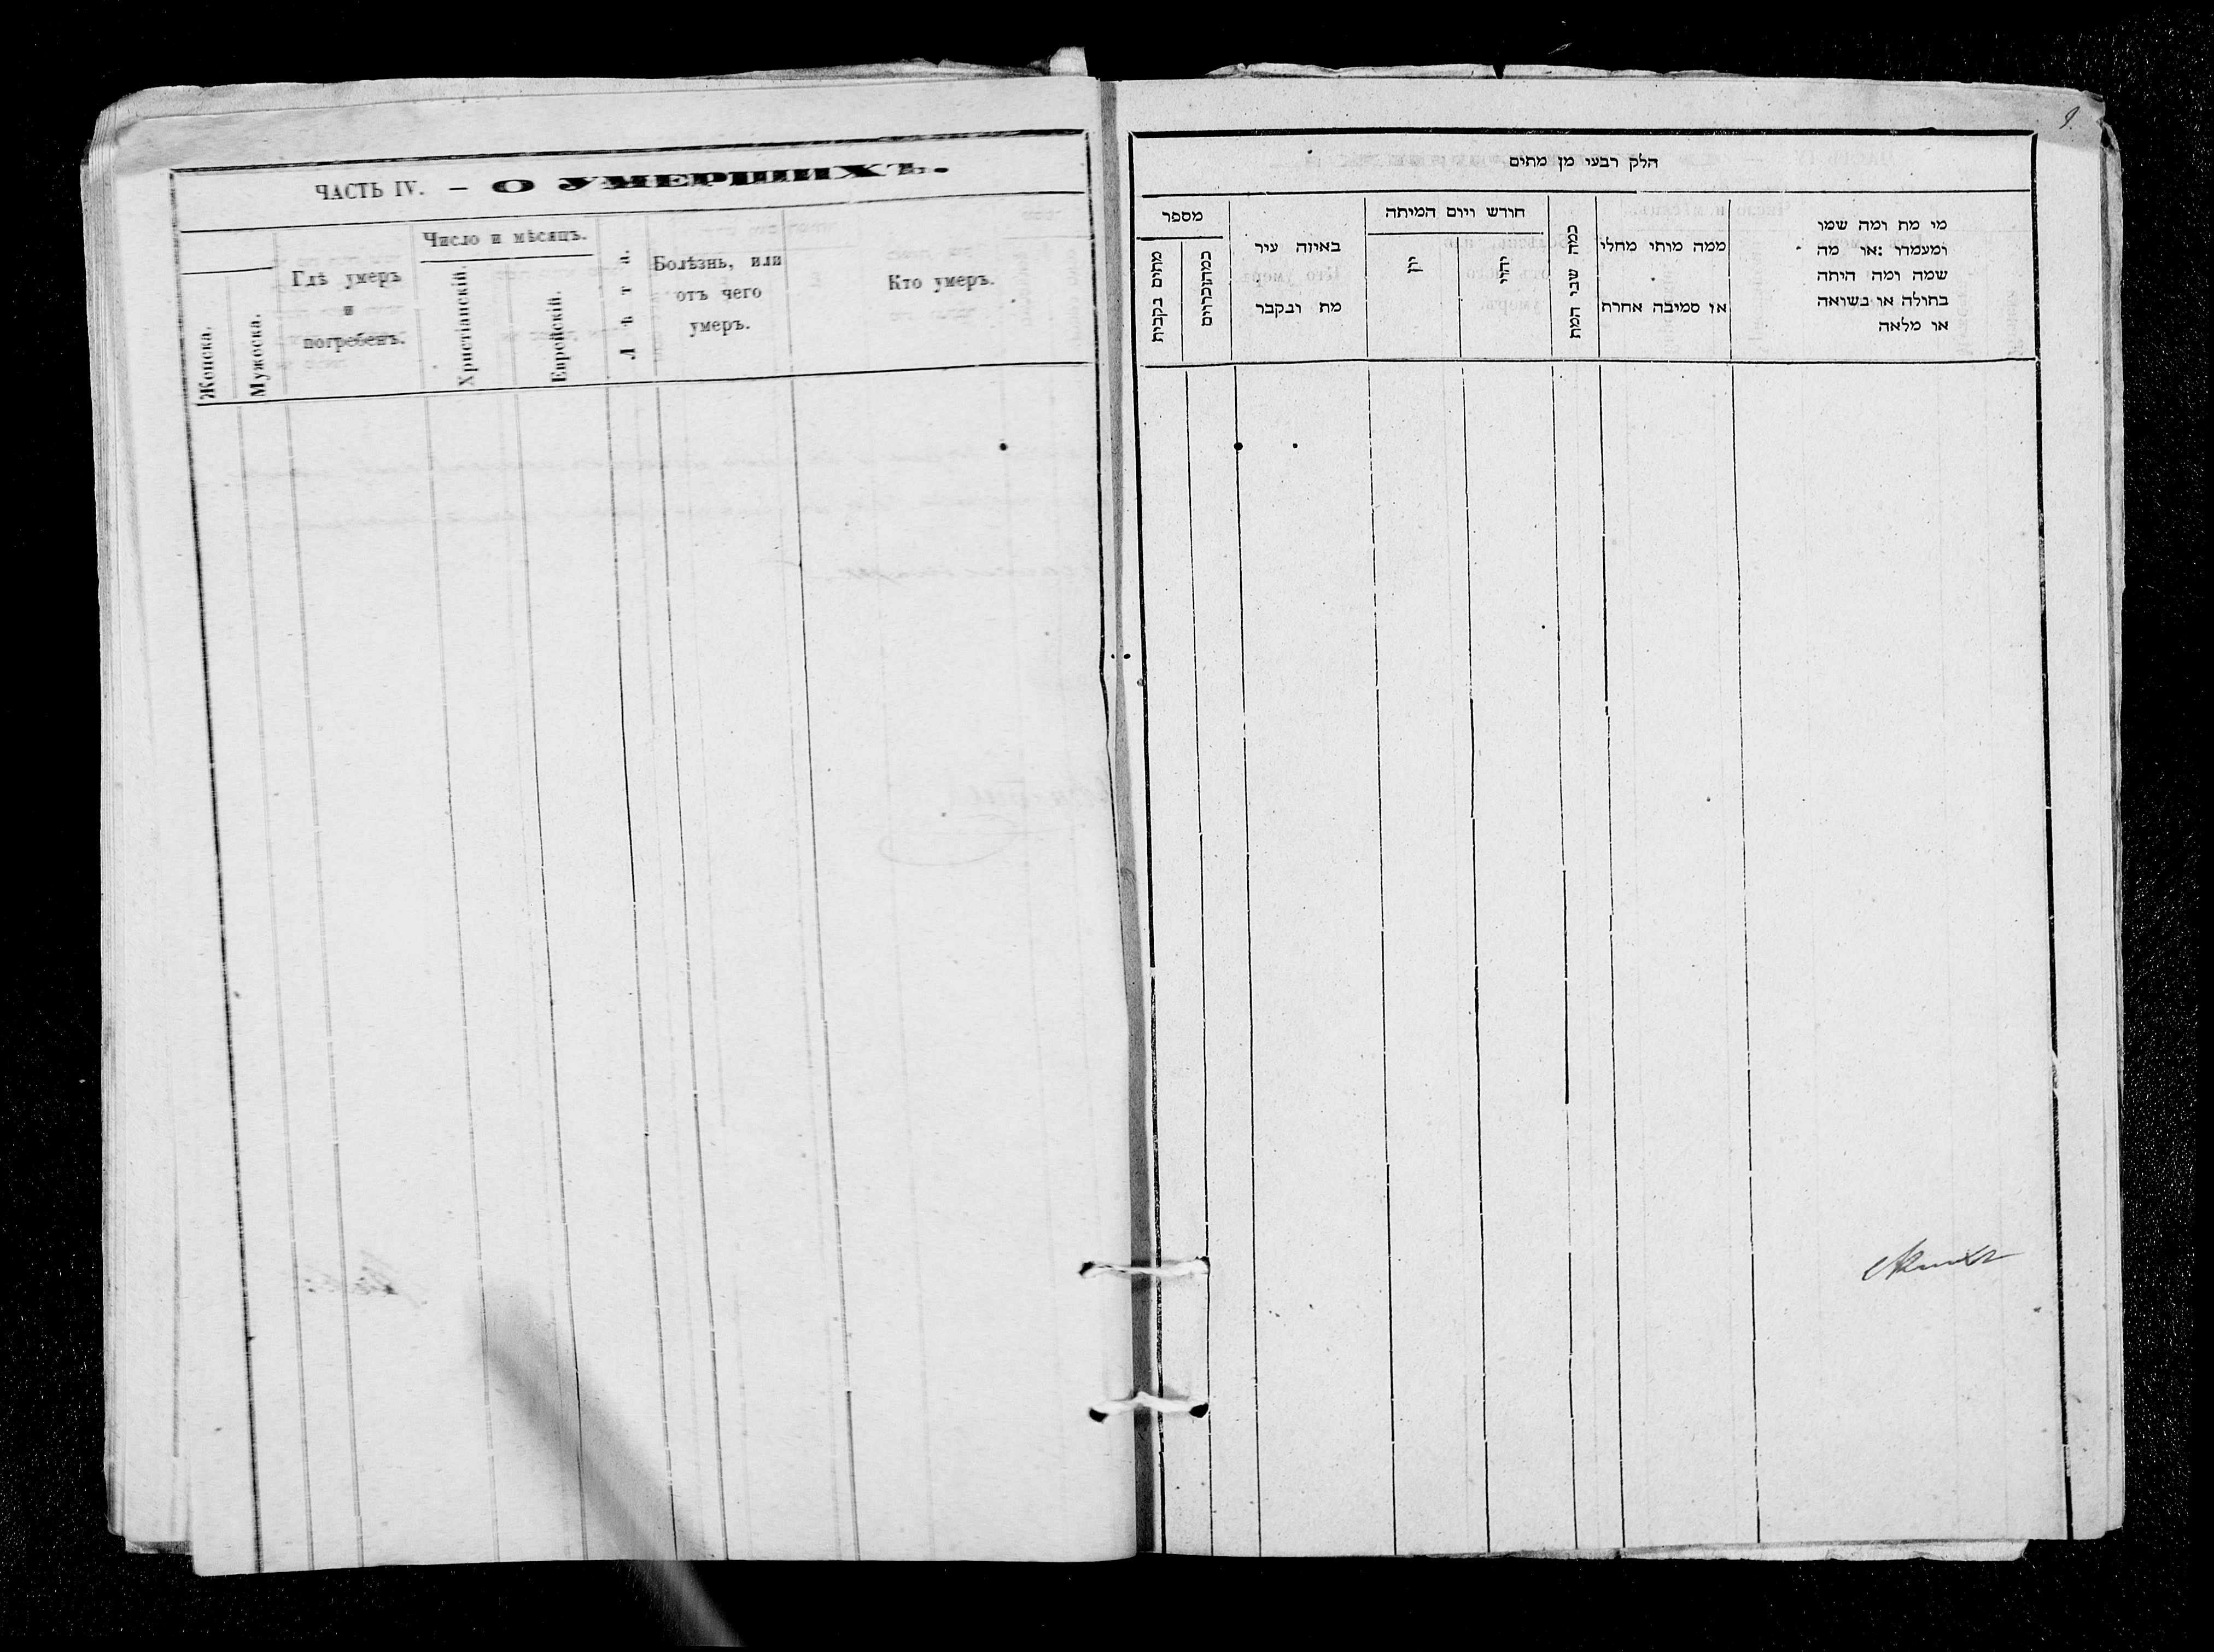 ЧАСТЬ IV. — О УМЕРШИХЪ.
Женска.
Мужеска.
Гдѣ умеръ
и
погребенъ.
Число и мѣсяцъ.
Христіанскій.
Еврейскій.
Лѣта.
Болѣзнь, или
отъ чего
умеръ.
Кто умеръ.
9.
הלק רבעי מן מתים
מספר
מתים בקבית
במהזכרוים
באיזה עיר
מת ונקבר
חודש ויום המיתה
יון
יהוי
כמה שני המת
ממה מותי מחלי
או סמיבה אחרת
מי מת ומה שמו
ומעמדו :או מה
שמה ומה היתה
בתולה או נשואה
או מלאה